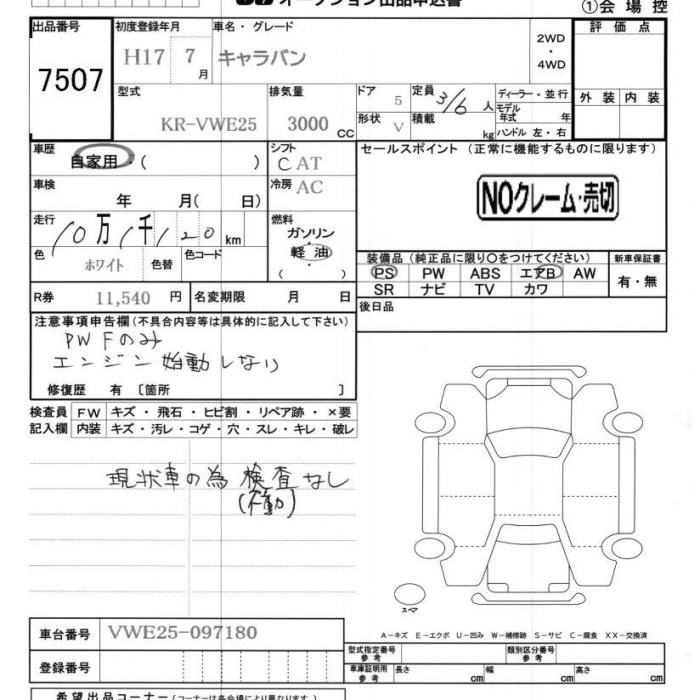 オークション出品申込書
①会場控
出品番号
7507
初度登録年月
H17 7月
車名・グレード
キャラバン
2WD
・
4WD
評価点
型式
KR-VWE25
排気量
3000 CC
ドア
5
形状
V
定員
3/6 人
積載
kg
ディーラー・並行
モデル年式 年
ハンドル 左・右
外装 内装
車歴
自家用・( )
シフト
C AT
セールスポイント (正常に機能するものに限ります)
NOクレーム・売切
車検
年 月( 日)
冷房
AC
走行
10万1千120km
燃料
ガソリン
軽油
( )
色
ホワイト
色替
色コード
装備品 (純正品に限り○をつけてください)
PS PW ABS エアB AW
SR ナビ TV カワ
新車保証書
有・無
R券 11,540 円
名変期限 月 日
後日品
注意事項申告欄(不具合内容等は具体的に記入して下さい)
PW Fのみ
エンジン始動しない
修復歴 有 〔箇所 〕
検査員 FW キズ・飛石・ヒビ割・リペア跡・×要
記入欄 内装 キズ・汚レ・コゲ・穴・スレ・キレ・破レ
現状車の為 検査なし
(不動)
スペア
A-キズ E-エクボ U-凹み W-補修跡 S-サビ C-腐食 XX-交換済
車台番号 VWE25-097180
登録番号
型式指定番号 参考
類別区分番号 参考
車庫証明用 参考
長さ cm 幅 cm 高さ cm
希望出品コーナー(コーナーは各会場により異なります)